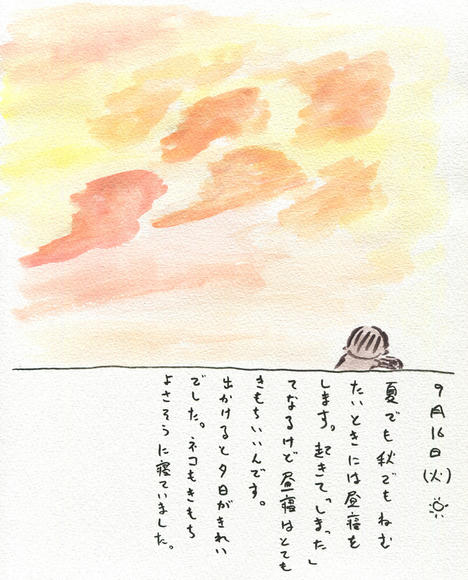 9月16日(火)
夏でも秋でもねむ
たいときには昼寝を
します。起きて「しまった」
てなるけど昼寝はとても
きもちいいんです。
出かけると夕日がきれい
でした。ネコもきもち
よさそうに寝ていました。